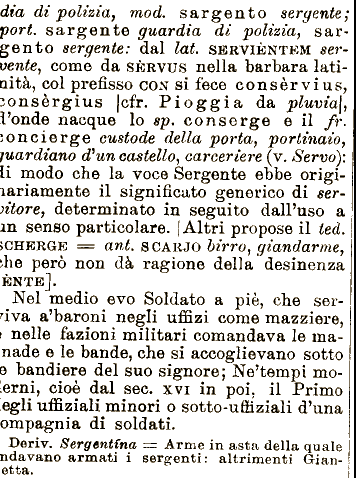 dia di polizia, mod. sargento sergente;
port. sargente guardia di polizia, sar-
gento sergente: dal lat. SERVIÈNTEM ser-
vente, come da SÈRVUS nella barbara lati-
nità, col prefisso CON si fece consèrvius,
consèrgius [cfr. Pioggia da pluvia],
d'onde nacque lo sp. conserge e il fr.
concierge custode della porta, portinaio,
guardiano d'un castello, carceriere (v. Servo):
di modo che la voce Sergente ebbe origi-
nariamente il significato generico di ser-
vitore, determinato in seguito dall'uso a
un senso particolare. [Altri propose il ted.
SCHERGE = ant. SCARJO birro, giandarme,
che però non dà ragione della desinenza
ÈNTE].
Nel medio evo Soldato a piè, che ser-
viva a'baroni negli uffizi come mazziere,
e nelle fazioni militari comandava le ma-
nade e le bande, che si accoglievano sotto
le bandiere del suo signore; Ne'tempi mo-
derni, cioè dal sec. XVI in poi, il Primo
degli uffiziali minori o sotto-uffiziali d'una
compagnia di soldati.
Deriv. Sergentína = Arme in asta della quale
andavano armati i sergenti: altrimenti Gian-
netta.